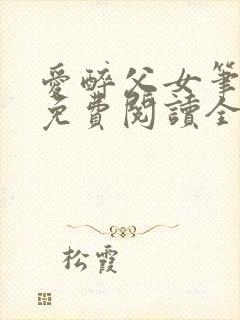 愛醉父女筆
免費閱讀全
松霞